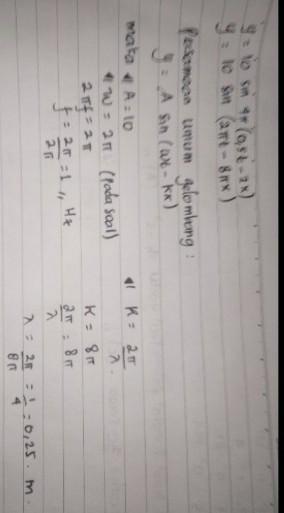 y = 10 sin 4π (0,5t - 2x)
y = 10 sin (2πt - 8πx)
Persamaan umum gelombang :
y = A sin (ωt - kx)
maka A = 10
ω = 2π (pada soal)
2πf = 2π
f = 2π/2π = 1 // Hz
K = 2π/λ
K = 8π
2π/λ = 8π
λ = 2π/8π = 1/4 = 0,25 m.